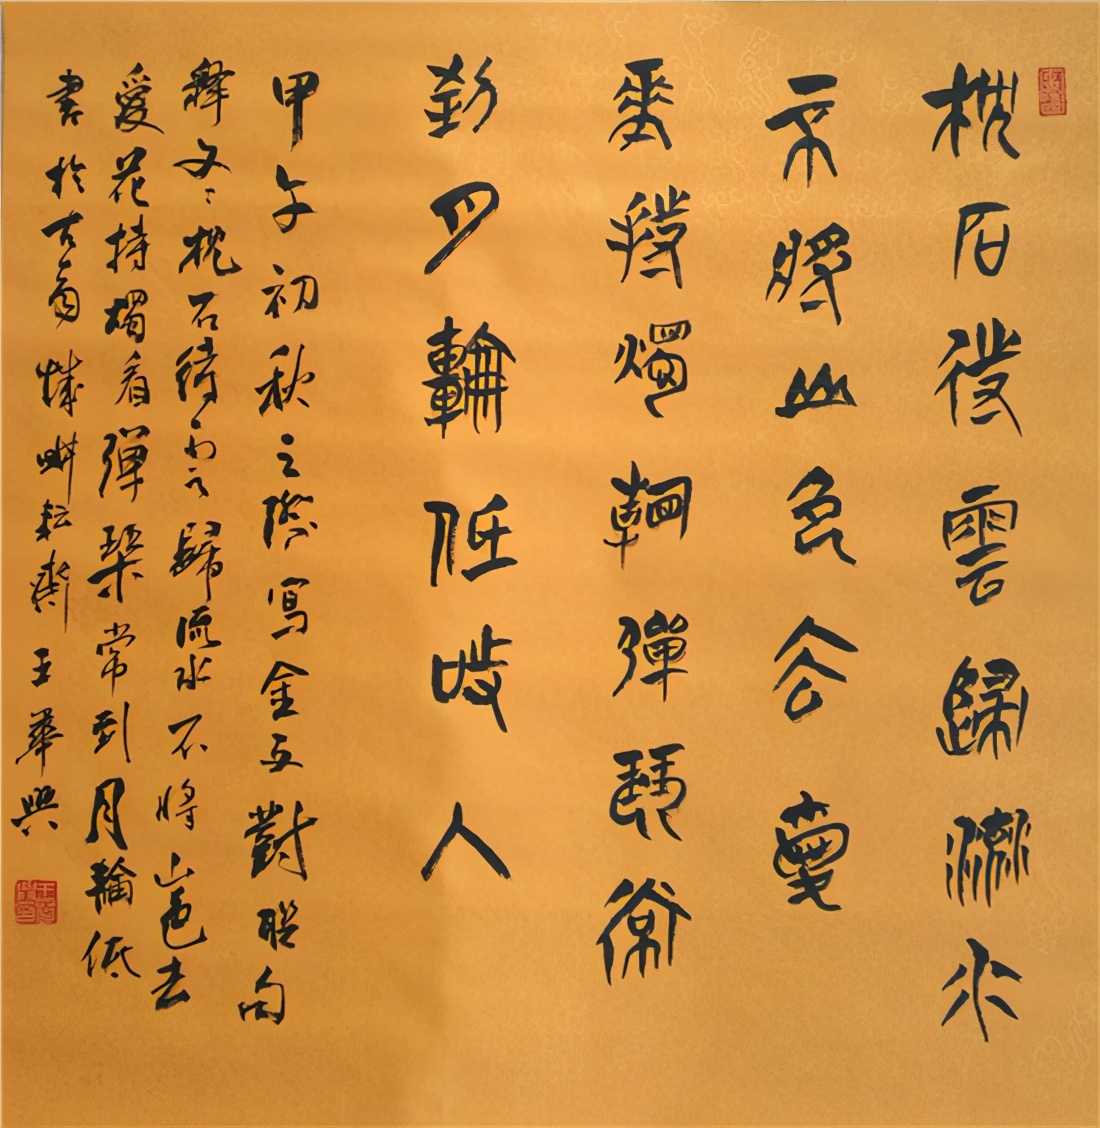 枕石待雲歸流水
不將山色去愛
花持燭看彈琴常
到月輪低
甲午初秋之際寫金文對聯句
釋文：枕石待雲歸流水不將山色去
愛花持燭看彈琴常到月輪低
書於古商城畊耘齋王華興